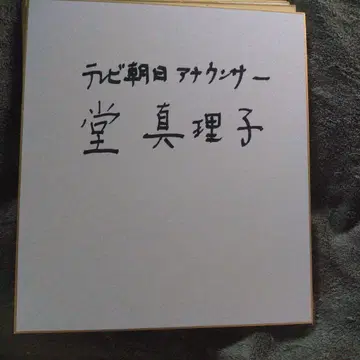 テレビ朝日アナウンサー
堂 真理子